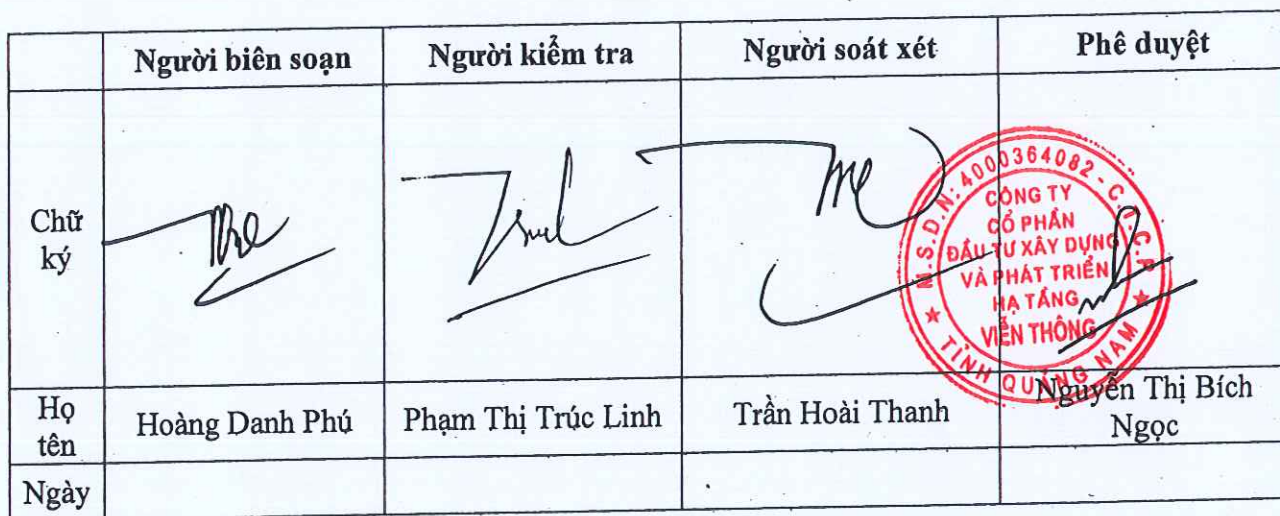 Người biên soạn Người kiểm tra Người soát xét Phê duyệt
Chữ
ký
M.S.D.N: 4000364082 - C.T.C.P
CÔNG TY
CỔ PHẦN
ĐẦU TƯ XÂY DỰNG
VÀ PHÁT TRIỂN
HẠ TẦNG
VIỄN THÔNG
★ TỈNH QUẢNG NAM ★
Họ
tên
Hoàng Danh Phú Phạm Thị Trúc Linh Trần Hoài Thanh Nguyễn Thị Bích
Ngọc
Ngày